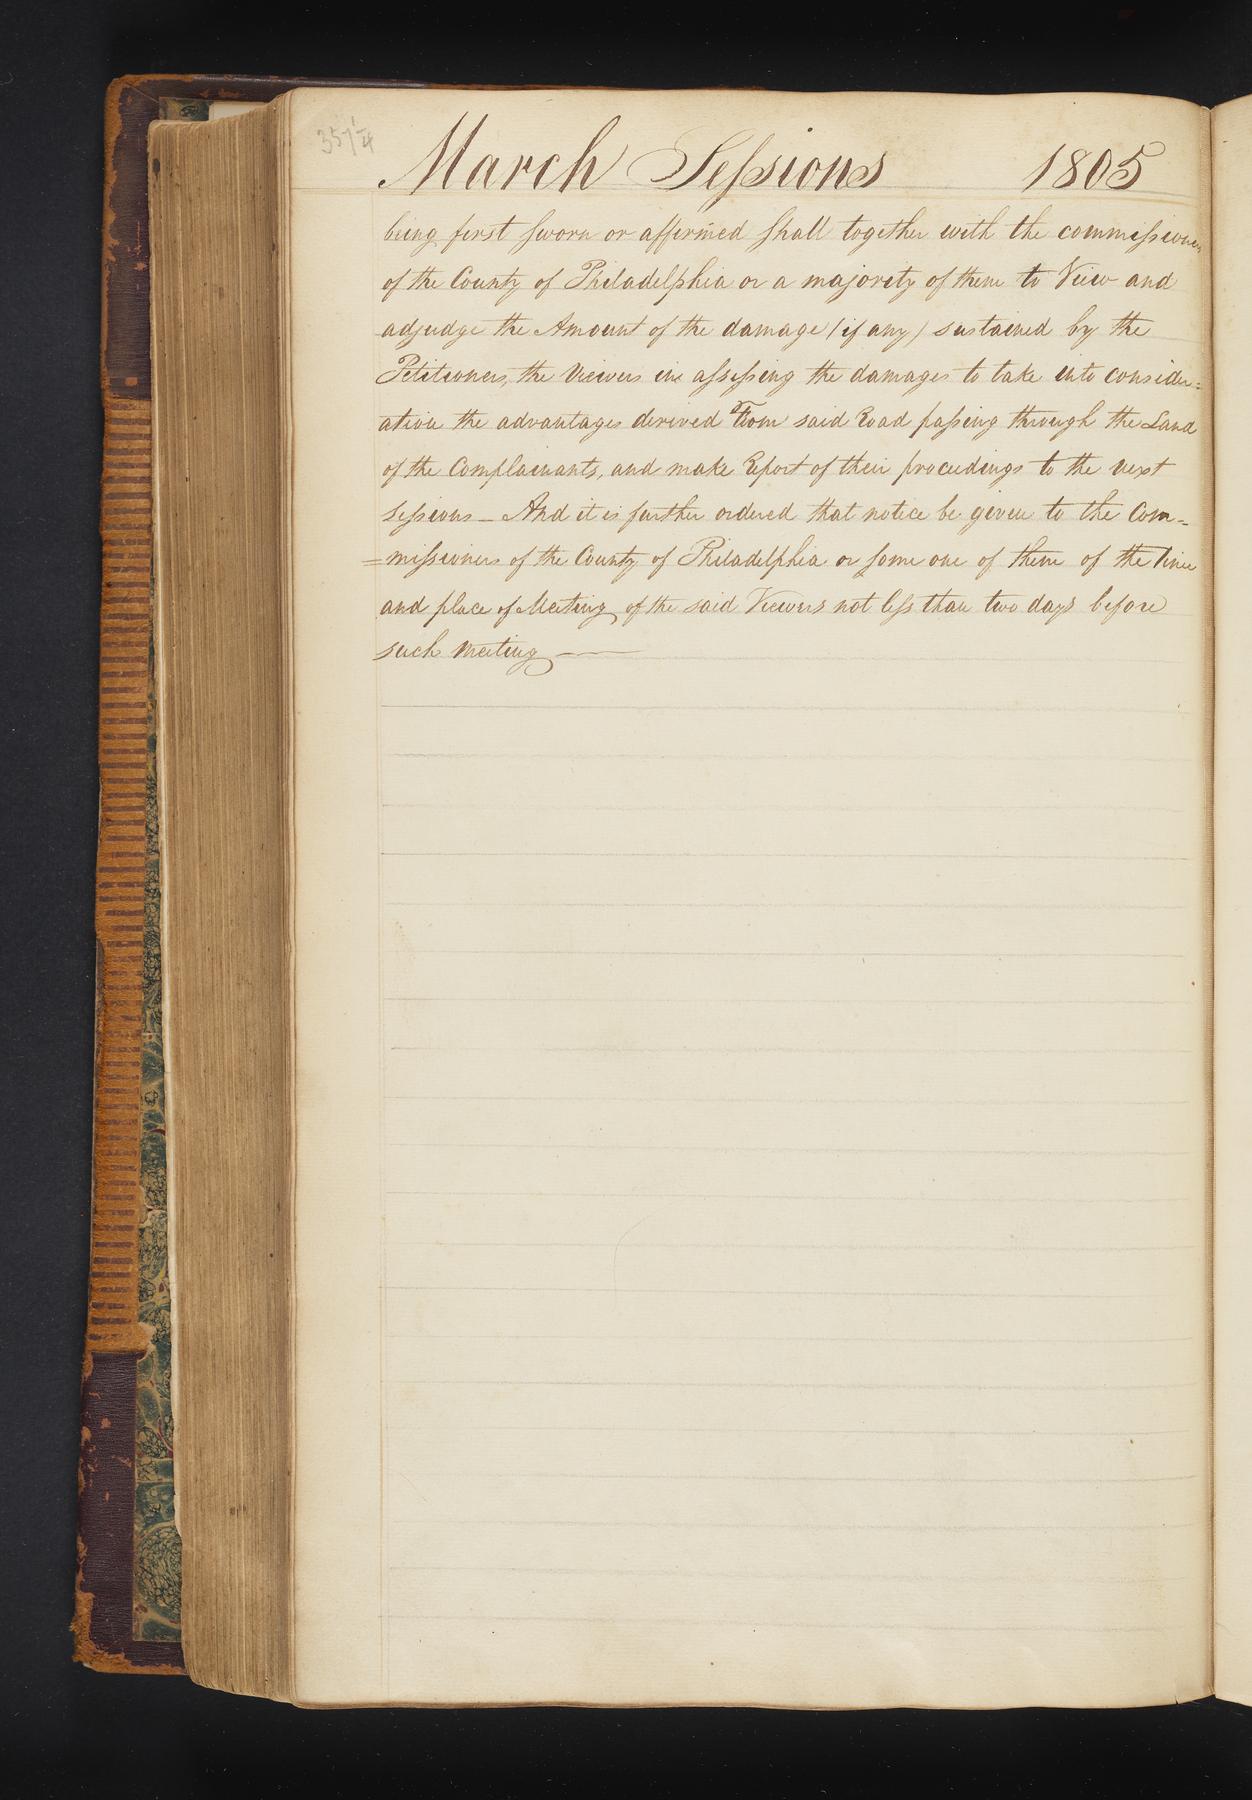 357 1/4
March Sessions 1805
being first sworn or affirmed shall together with the commissioners
of the County of Philadelphia or a majority of them to View and
adjudge the Amount of the damage (if any) sustained by the
Petitioners, the Viewers in assessing the damages to take into consider=
ation the advantages derived From said Road passing through the Land
of the Complainants, and make Report of their proceedings to the next
Sessions — And it is further ordered that notice be given to the Com-
=missioners of the County of Philadelphia or some one of them of the time
and place of Meeting of the said Viewers not less than two days before
such meeting —